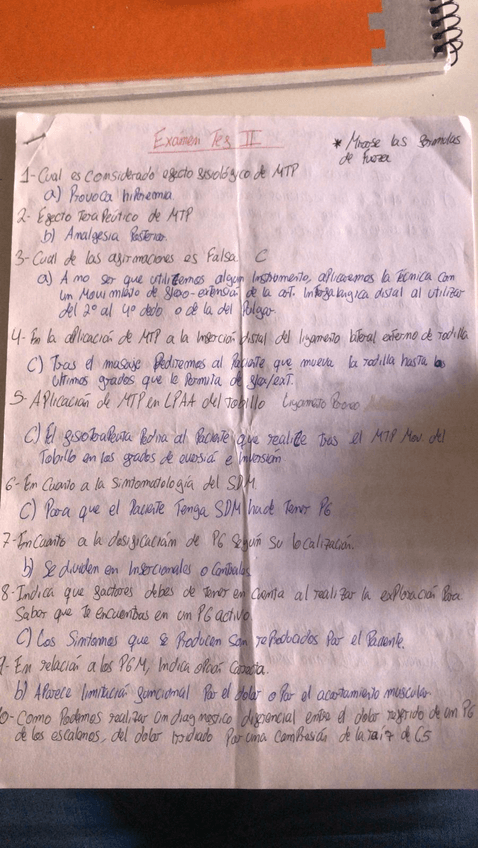 Examen Tes II
* Mirarse las formulas
de fuerza
1- Cual es considerado efecto fisiológico de MTP
a) Provoca hiperemia.
2- Efecto Terapéutico de MTP
b) Analgesia Posterior.
3- Cual de las afirmaciones es Falsa C
a) A no ser que utilizemos algun Instrumento, aplicaremos la Técnica con
un Movimiento de flexo-extensión de la art. Interfalangica distal al utilizar
del 2º al 4º dedo o de la del Pulgar.
4- En la aplicación de MTP a la Inserción distal del ligamento lateral externo de rodilla
C) Tras el masaje Pediremos al Paciente que mueva la rodilla hasta los
últimos grados que le Permita de flex/ext.
5- Aplicación de MTP en LPAA del Tobillo Ligamento
C) El fisioterapeuta Pedira al Paciente que realize tras el MTP Mov. del
Tobillo en los grados de eversión e Inversión
6- En Cuanto a la Sintomatología del SDM
C) Para que el Paciente Tenga SDM ha de Tener PG
7- En Cuanto a la clasificación de PG Según Su localización.
b) Se dividen en Insercionales o Centrales
8- Indica que factores debes de Tener en Cuenta al realizar la exploración Para
Saber que Te encuentras en un PG activo.
C) Los Sintomas que se Producen Son reProducidos Por el Paciente.
9- En relación a los PGM, Indica opción Correcta.
b) Aparece limitación funcional Por el dolor o Por el acortamiento muscular.
10- Como Podemos realizar un diagnostico diferencial entre el dolor referido de un PG
de los escalenos, del dolor irradiado Por una Compresión de la raiz de C5